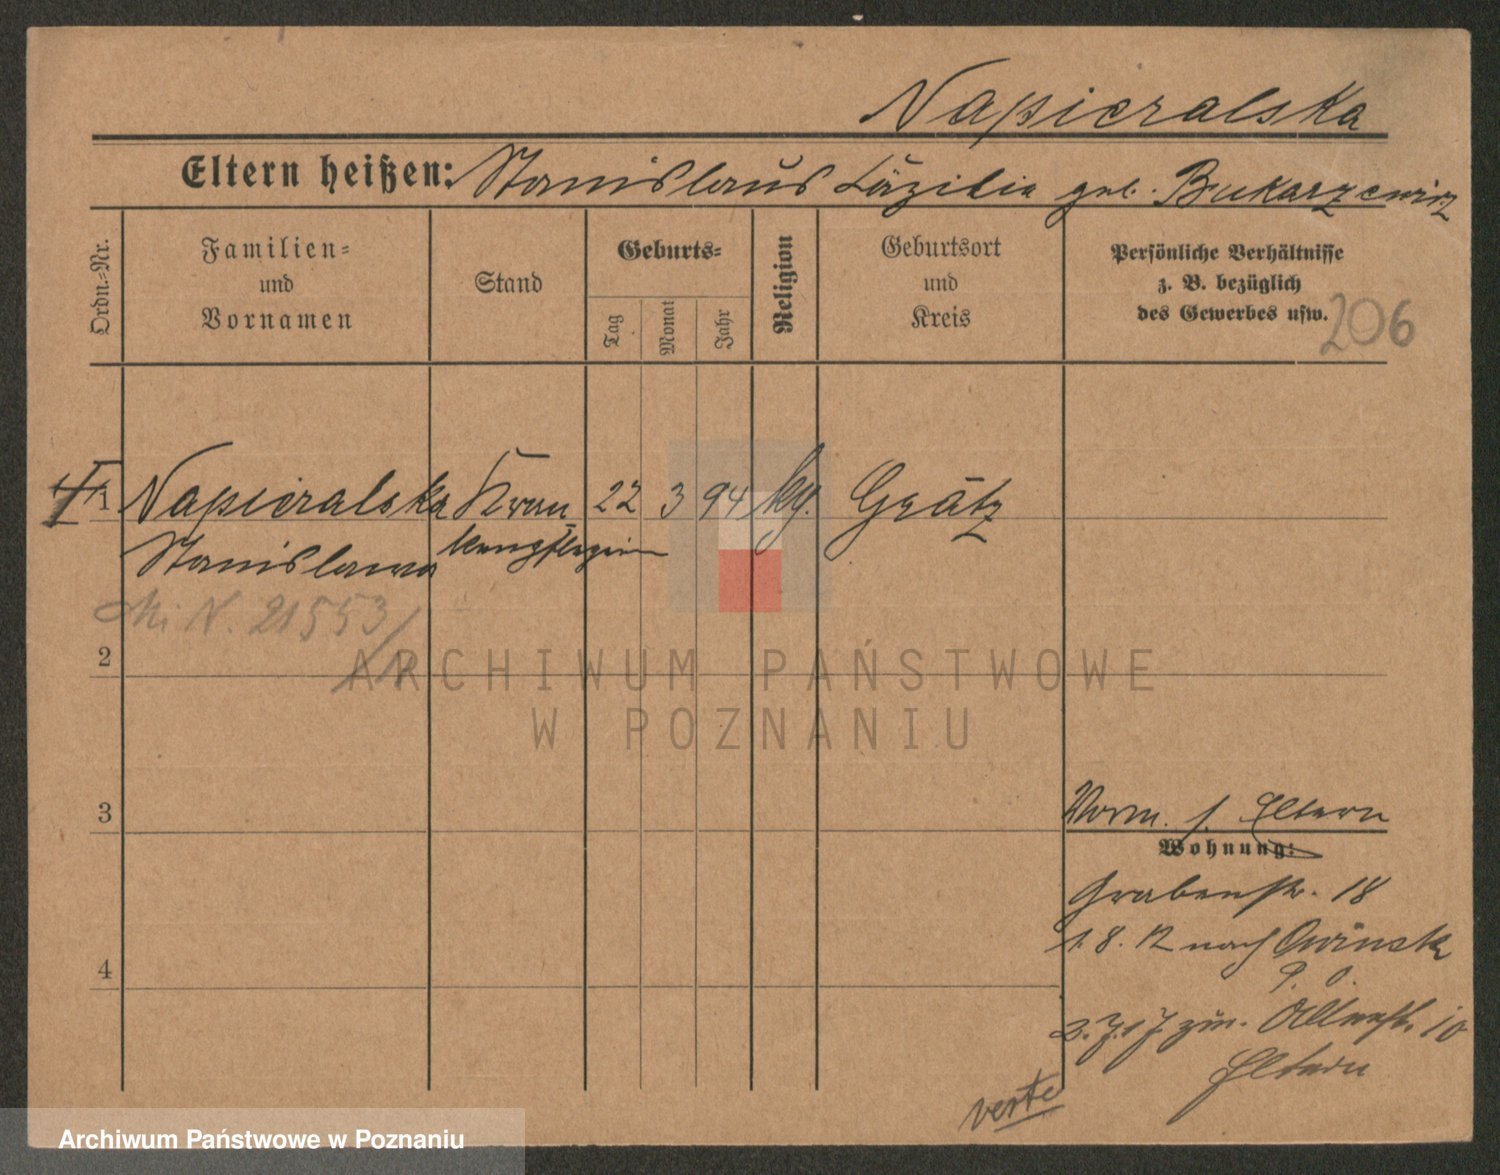 Napieralska
Eltern heißen: Stanislaus Cäzilie geb. Bukarzewicz
Ordn.-Nr.
Familien-
und
Vornamen
Stand
Geburts-
Tag
Monat
Jahr
Religion
Geburtsort
und
Kreis
Persönliche Verhältnisse
z. B. bezüglich
des Gewerbes usw.
206
1 Napieralska Kran 22 3 94 Grätz
Stanislawa kenpflegerin
N. 21553/
2
ARCHIWUM PAŃSTWOWE
W POZNANIU
3
Vorm. s. Eltern
Wohnung:
Grabenstr. 18
1. 8. 12 nach Owinsk
4
P. O.
2. 7. 17 zur. 10
Eltern
verte
Archiwum Państwowe w Poznaniu